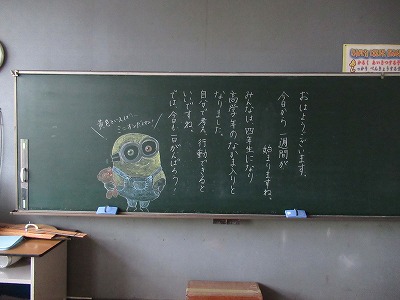 おはようございます。
今日から一週間が
始まりますね。
みんなは、四年生になり
高学年のなかま入りと
なりました。
自分で考え、行動できると
いいですね。
では、今日も一日がんばろう！